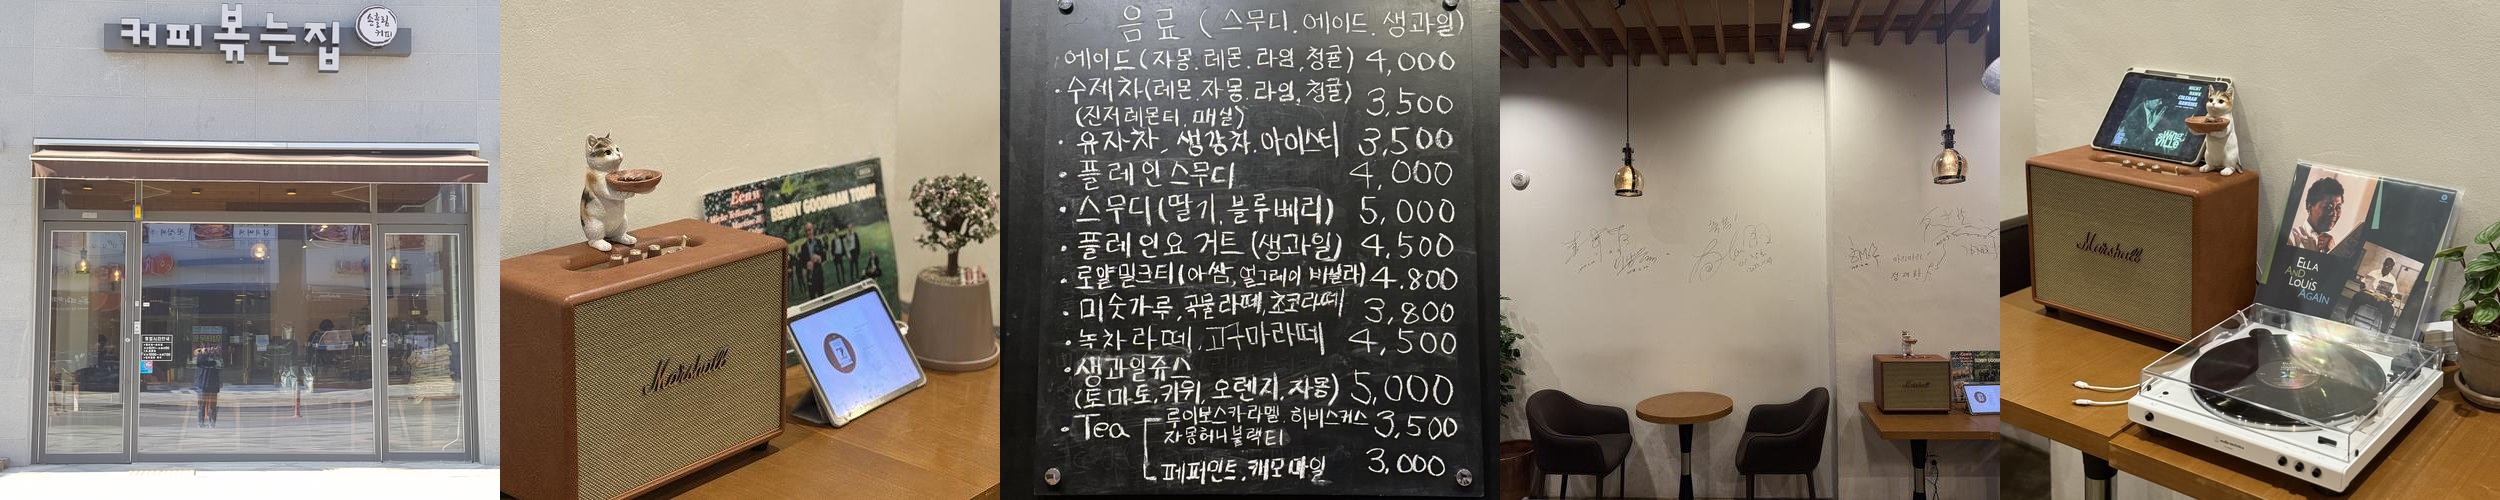 커피볶는집
손흘림
커피
Marshall
BENNY GOODMAN TODAY
음료 (스무디.에이드.생과일)
에이드(자몽.레몬.라임,청귤) 4,000
·수제차(레몬.자몽.라임,청귤) 3,500
(진저레몬티, 매실)
·유자차, 생강차.아이스티 3,500
·플레인스무디 4,000
·스무디(딸기.블루베리) 5,000
·플레인요거트(생과일) 4,500
·로얄밀크티(아쌈,얼그레이 바닐라) 4.800
·미숫가루,곡물라떼,쵸코라떼 3,800
·녹차라떼,고구마라떼 4,500
·생과일쥬스
(토마토,키위,오렌지,자몽) 5,000
·Tea 루이보스카라멜.히비스커스 3,500
자몽허니블랙티
페퍼민트.캐모마일 3,000
Marshall
ELLA
AND
LOUIS
AGAIN